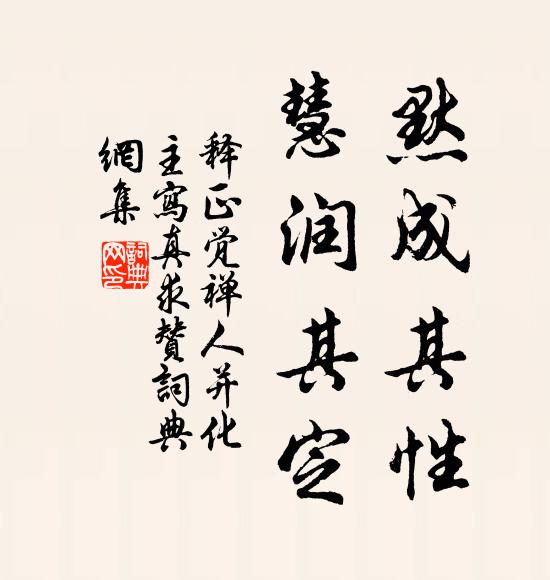 默成其性
慧润其定
释正觉禅人并化
主寫真求賛詞典
網集
詞典
网印